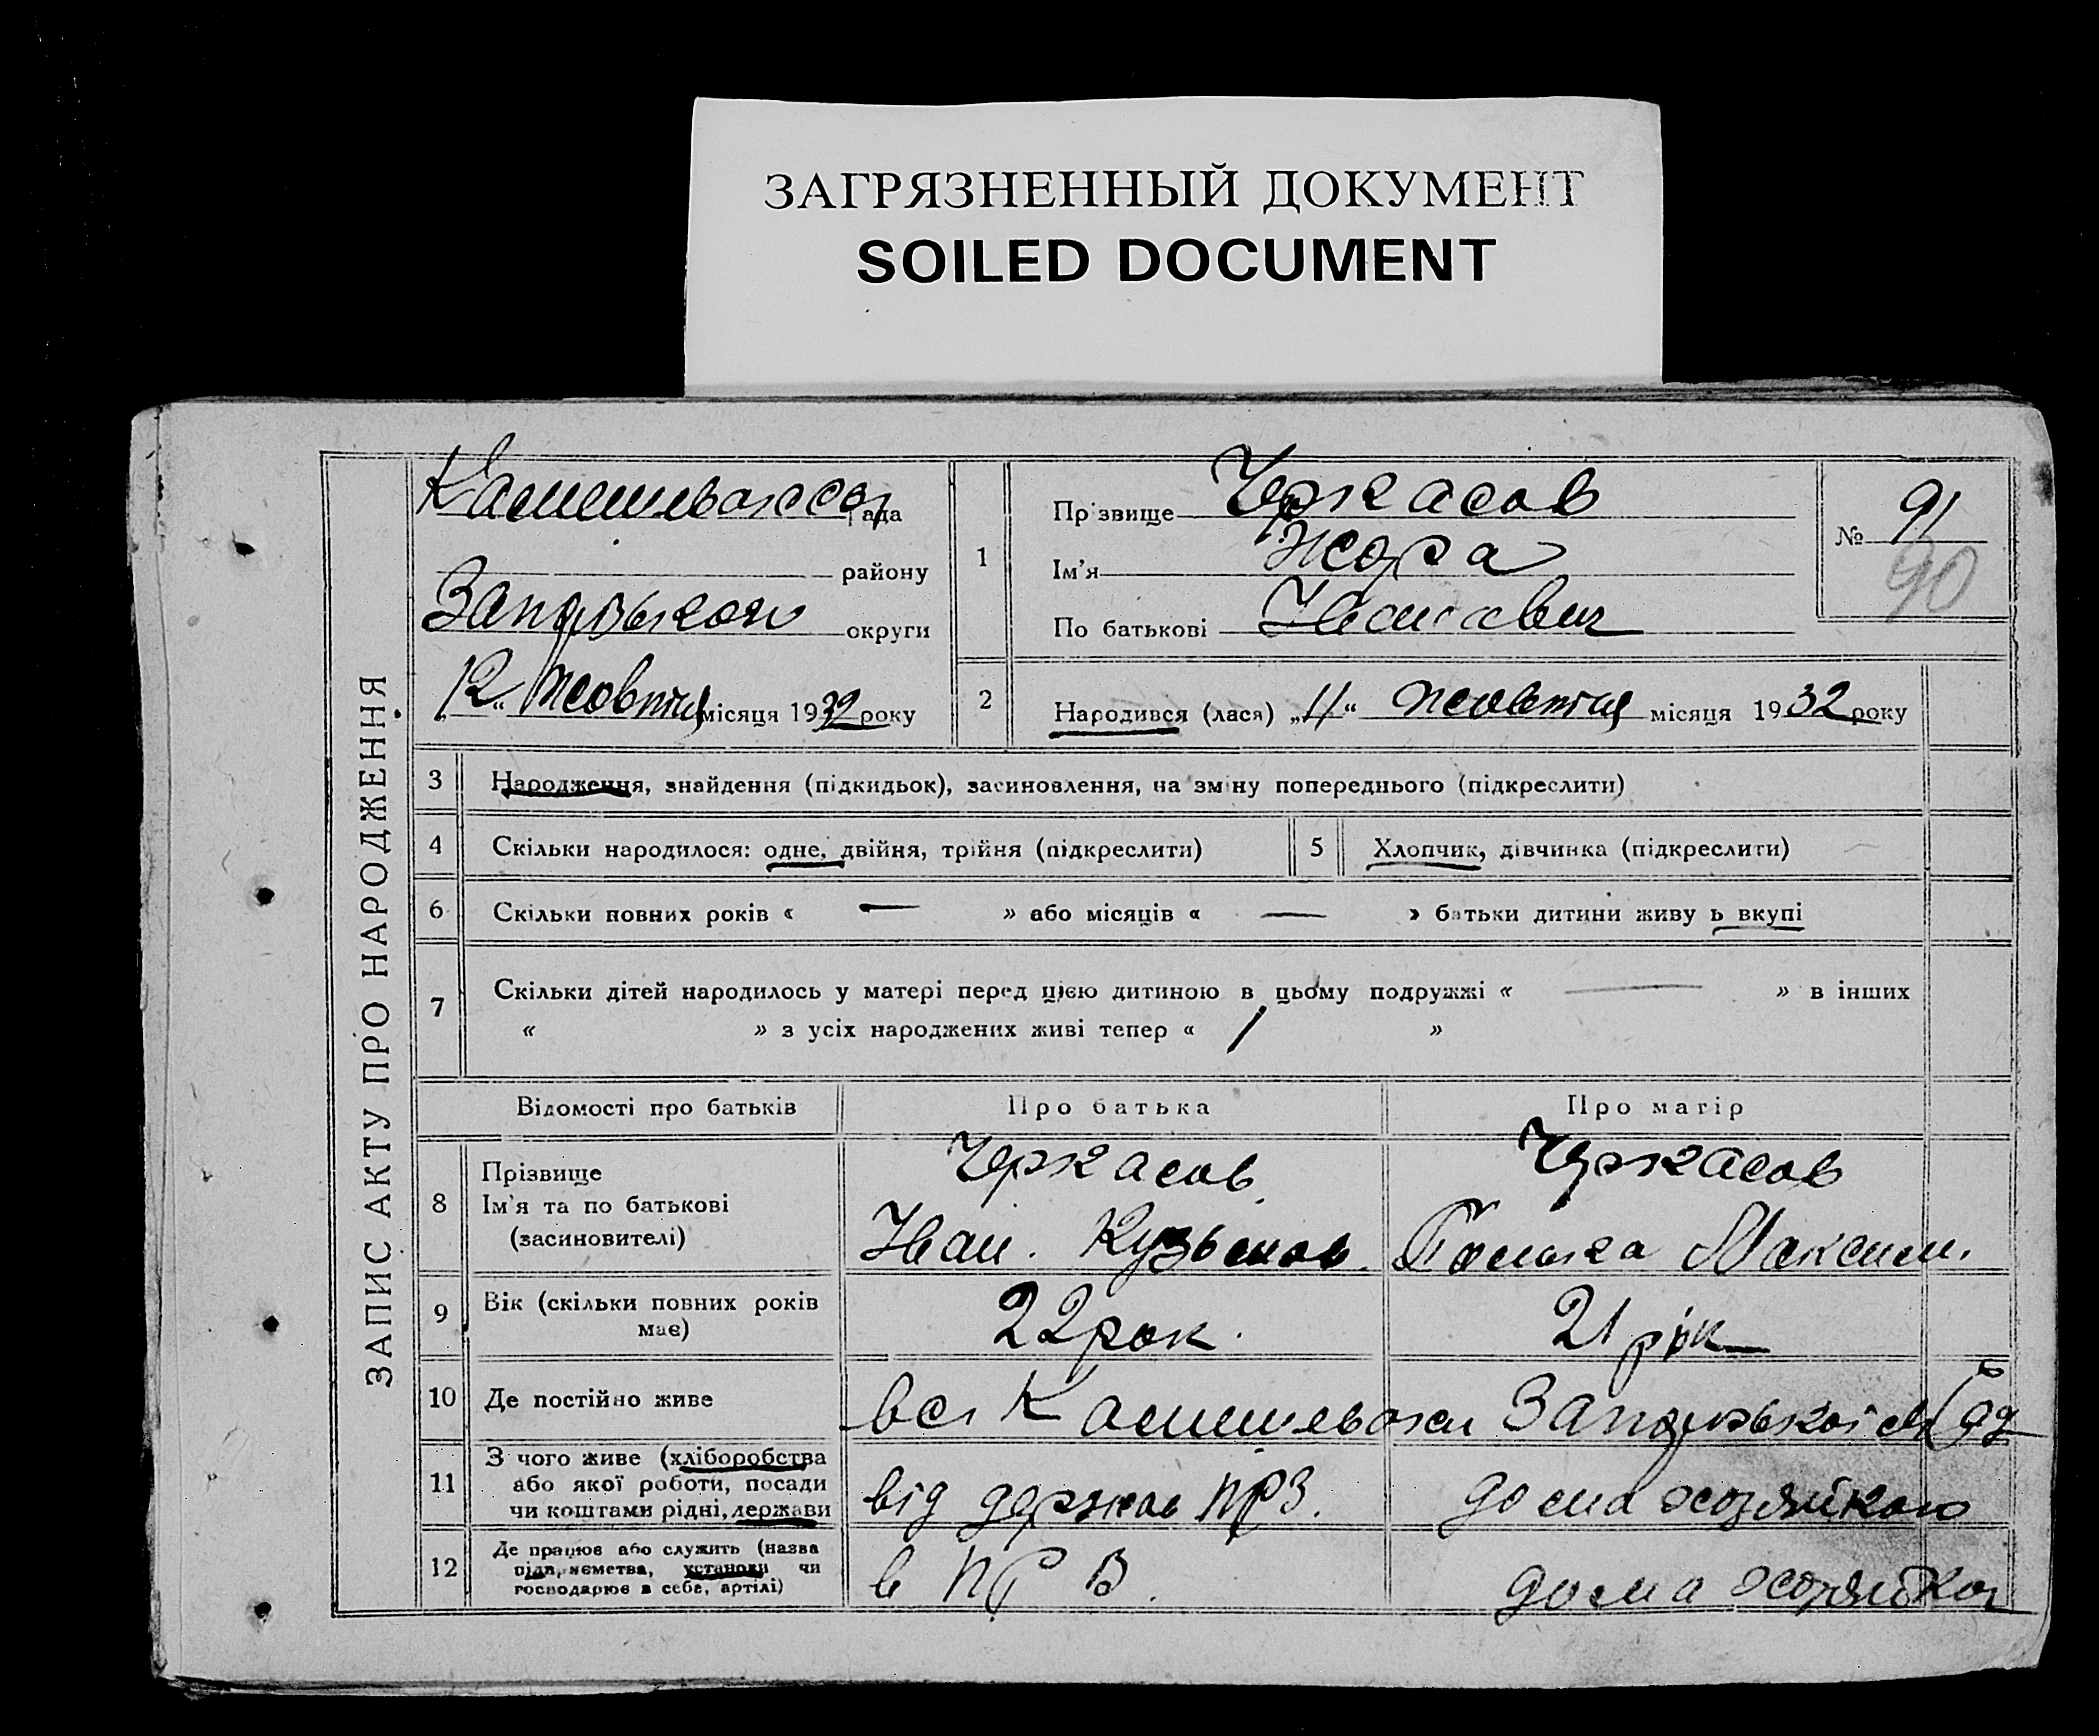 ЗАГРЯЗНЕННЫЙ ДОКУМЕНТ
SOILED DOCUMENT
ЗАПИС АКТУ ПРО НАРОДЖЕННЯ
рада
району
округи
„12“ жовтня місяця 1932 року
1
Прізвище Черкасов
Ім'я Жора
По батькові Іванович
№ 91
90
2
Народився (лася) „11“ жовтня місяця 1932 року
3 Народження, знайдення (підкидьок), засиновлення, на зміну попереднього (підкреслити)
4 Скільки народилося: одне, двійня, трійня (підкреслити)
5 Хлопчик, дівчинка (підкреслити)
6 Скільки повних років « — » або місяців « — » батьки дитини живу ь вкупі
7 Скільки дітей народилось у матері перед цією дитиною в цьому подружжі « — » в інших
« » з усіх народжених живі тепер « 1 »
Відомості про батьків
Про батька
Про матір
8 Прізвище
Ім'я та по батькові
(засиновителі)
Черкасов
Іван. Кузьмов.
Черкасов
Максим.
9 Вік (скільки повних років
має)
22 рок.
21 рік
10 Де постійно живе
11 З чого живе (хліборобства
або якої роботи, посади
чи коштами рідні, держави
від держав ПРЗ.
дома хозяйкою
12 Де працює або служить (назва
підприємства, установи чи
господарює в себе, артілі)
в
дома хозяйкой